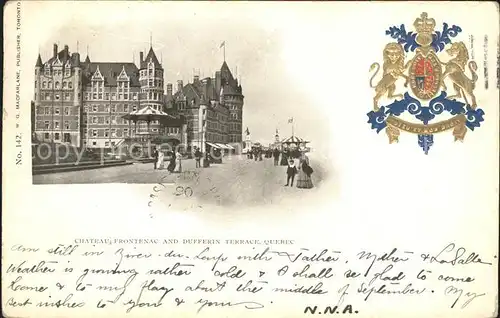 No. 142. W. G. MACFARLANE, PUBLISHER, TORONTO
DIEU ET MON DROIT
CHATEAU FRONTENAC AND DUFFERIN TERRACE, QUEBEC
Am still in River-du-Loup with Father, Mother & LaSalle.
Weather is growing rather cold & I shall be glad to come
home & to my about the middle of September. My
best wishes to you & yours.
N.N.A.